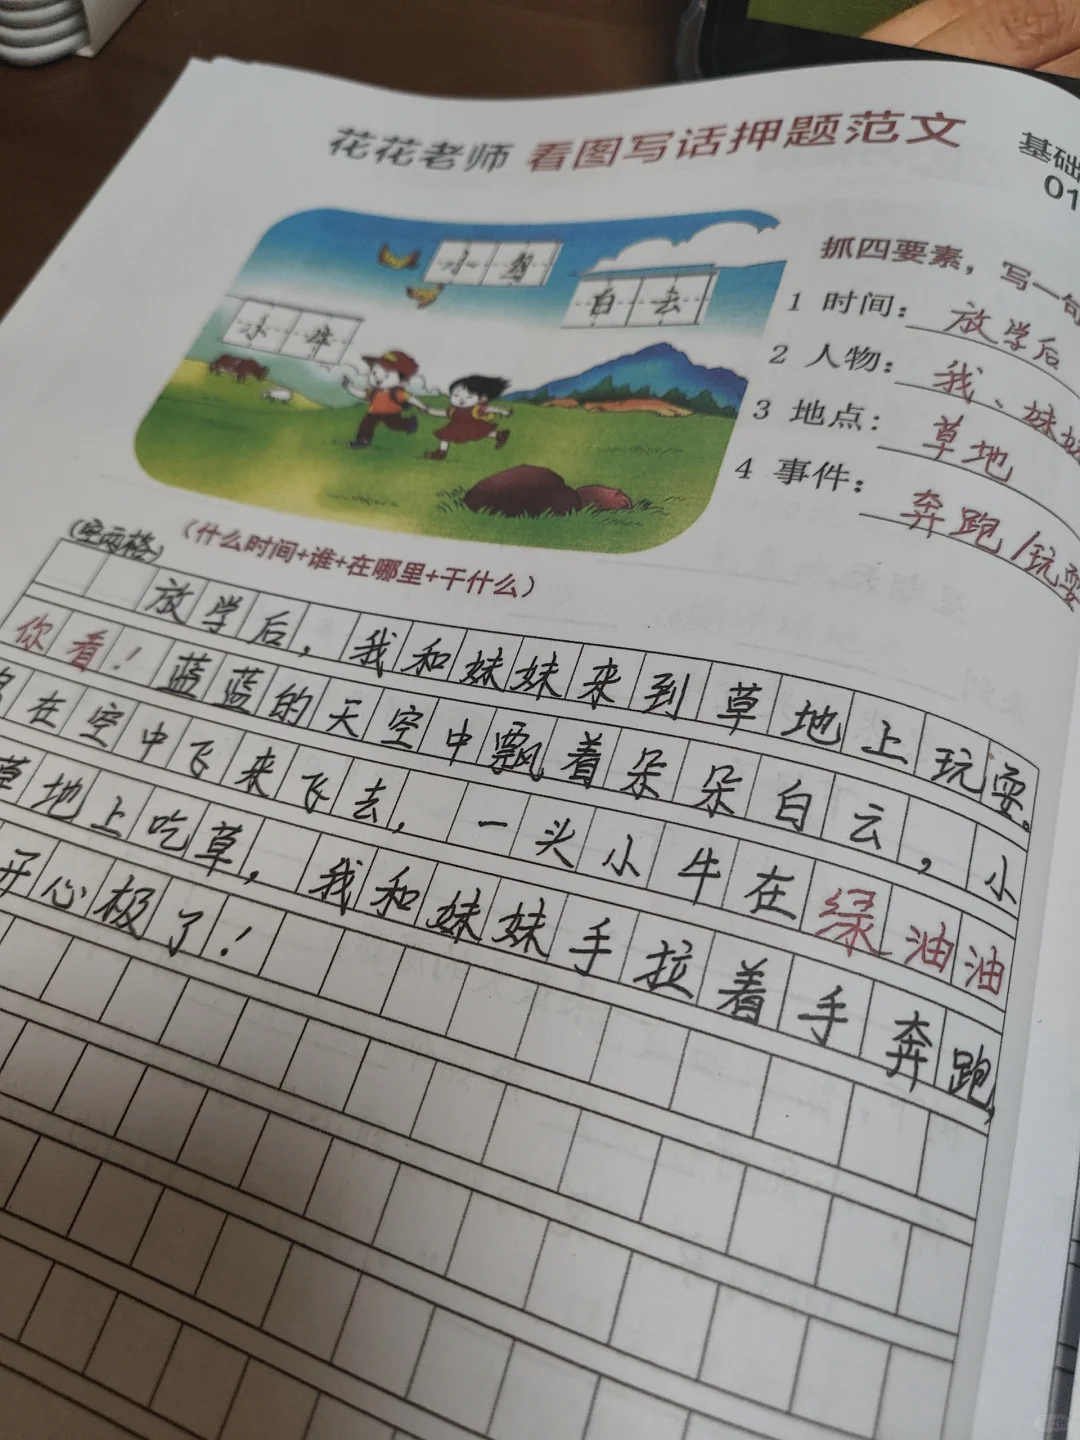 花花老师 看图写话押题范文
基础
01
小鸟
白云
小牛
抓四要素，写一句
1 时间：放学后
2 人物：我、妹妹
3 地点：草地
4 事件：奔跑/玩耍
(空两格)
(什么时间+谁+在哪里+干什么)
放学后，我和妹妹来到草地上玩耍。
你看！蓝蓝的天空中飘着朵朵白云，小
在空中飞来飞去，一头小牛在绿油油
草地上吃草，我和妹妹手拉着手奔跑，
开心极了！